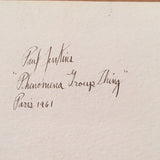 Paul Jenkins
"Phenomena Group Thing"
Paris 1961